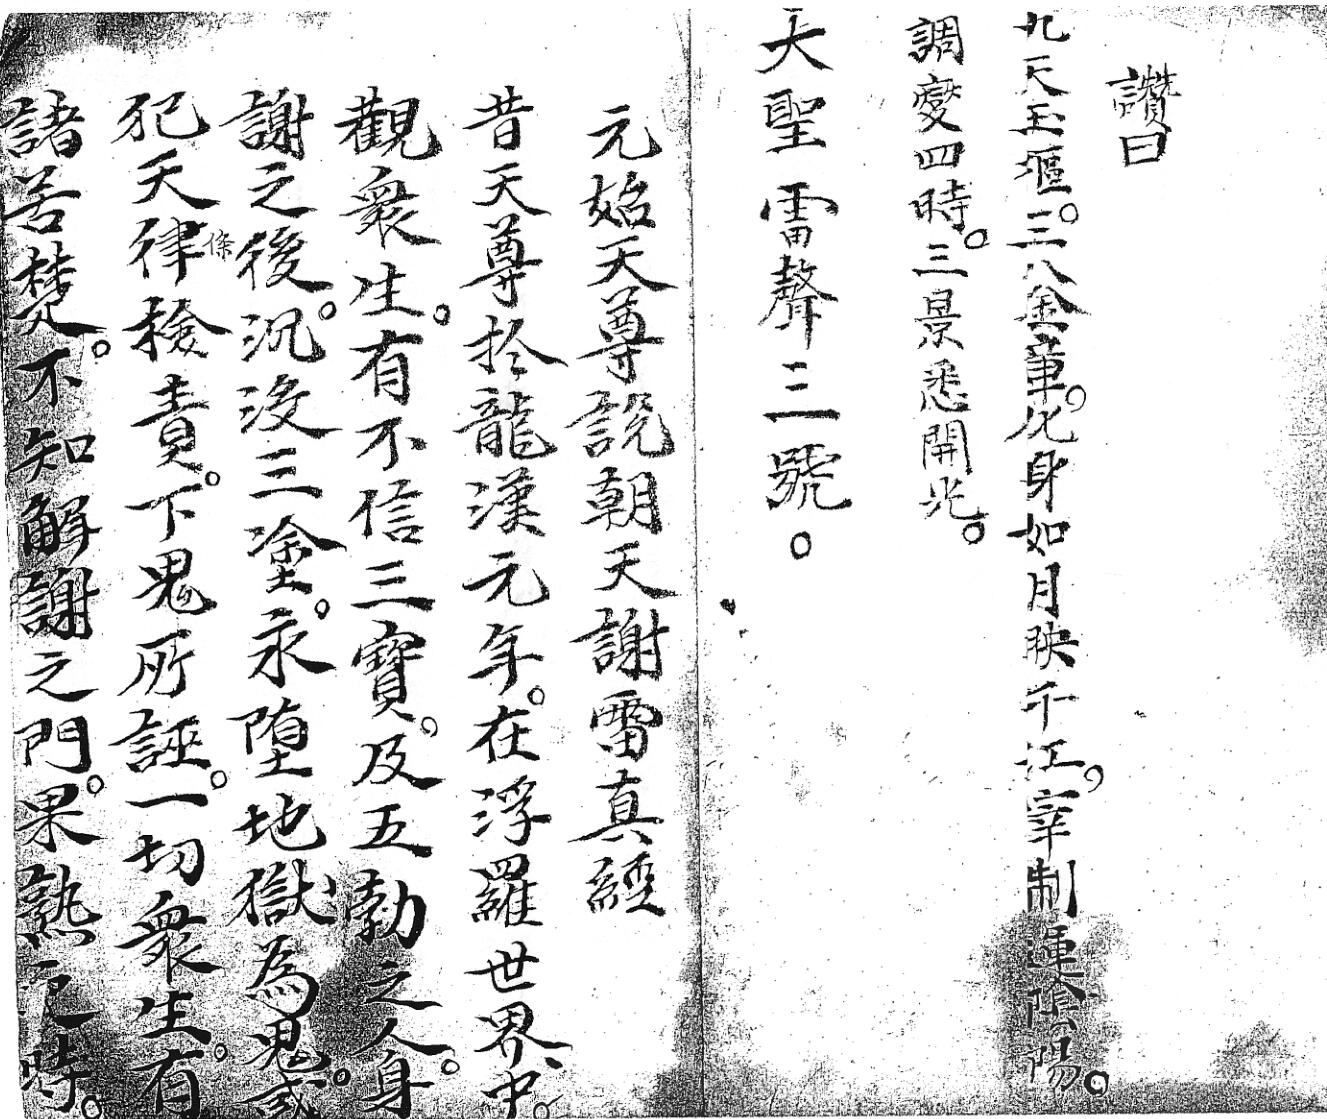 讚曰
九天玉樞。三八金章。化身如月映千江。宰制運陰陽。
調變四時。三景悉開光。
大聖雷聲三號。
元始天尊說朝天謝雷真經
昔天尊於龍漢元年。在浮羅世界、中。
觀衆生。有不信三寶。及五勃之人。身
謝之後。沉没三塗。永堕地獄為鬼。或
犯天律條檢責。下鬼所誣。一切衆生。有
諸苦楚。不知解謝之門。果熟之時。